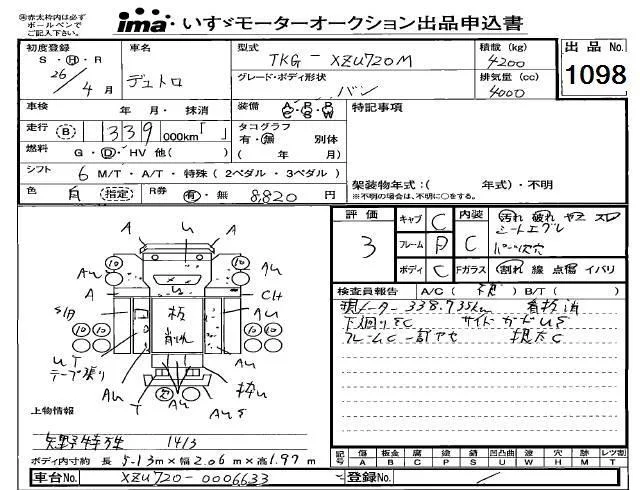 ㊟赤太枠内は必ず
ボールペンで
ご記入下さい。
ima いすゞモーターオークション出品申込書
初度登録 S・H・R 26/4月
車名 デュトロ
型式 TKG-XZU720M
グレード・ボディ形状 バン
積載(kg) 4200
排気量(cc) 4000
出品No. 1098
車検 年 月・抹消
装備 A C P S P W
特記事項
走行 (B) 1339 000km「 」
タコグラフ 有・無 別体
( 年 月)
燃料 G・D・HV 他( )
シフト 6 M/T・A/T・特殊(2ペダル・3ペダル)
架装物年式:( 年式)・不明
※不明の場合は、不明に○をする。
色 白 (指定) R券 有・無 8,820円
評価 3
キャブ C
フレーム P
ボディ C
内装 C
汚れ 破れ ヤニ スレ
シートエグレ
Fガラス 割れ 線 点傷 イバリ
検査員報告 A/C( )B/T( )
現メーター338.735km 看板泊
下廻りEC サイドガードUS
A U A
AU AU
A CH
板 削れ
AU
UT
テープ張り
T
AU AU AUS
枠U
上物情報
矢野特殊 1413
ボディ内寸約 長5.13m×幅2.06m×高1.97m
記号 傷A 板金B 腐C 塗P 錆S 凹凸曲U 波W 穴H 欠M レツ割T
車台No. XZU720-0006633
登録No.